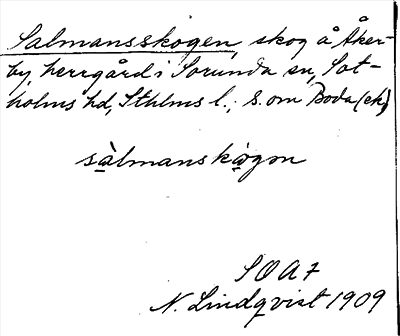 Salmansskogen, skog å Åker-
by, herrgård i Sorunda sn, Sot-
holms hd, Sthlms l.; S. om Boda (ek)
sàlmanskògən
SOA 7
N. Lindqvist 1909